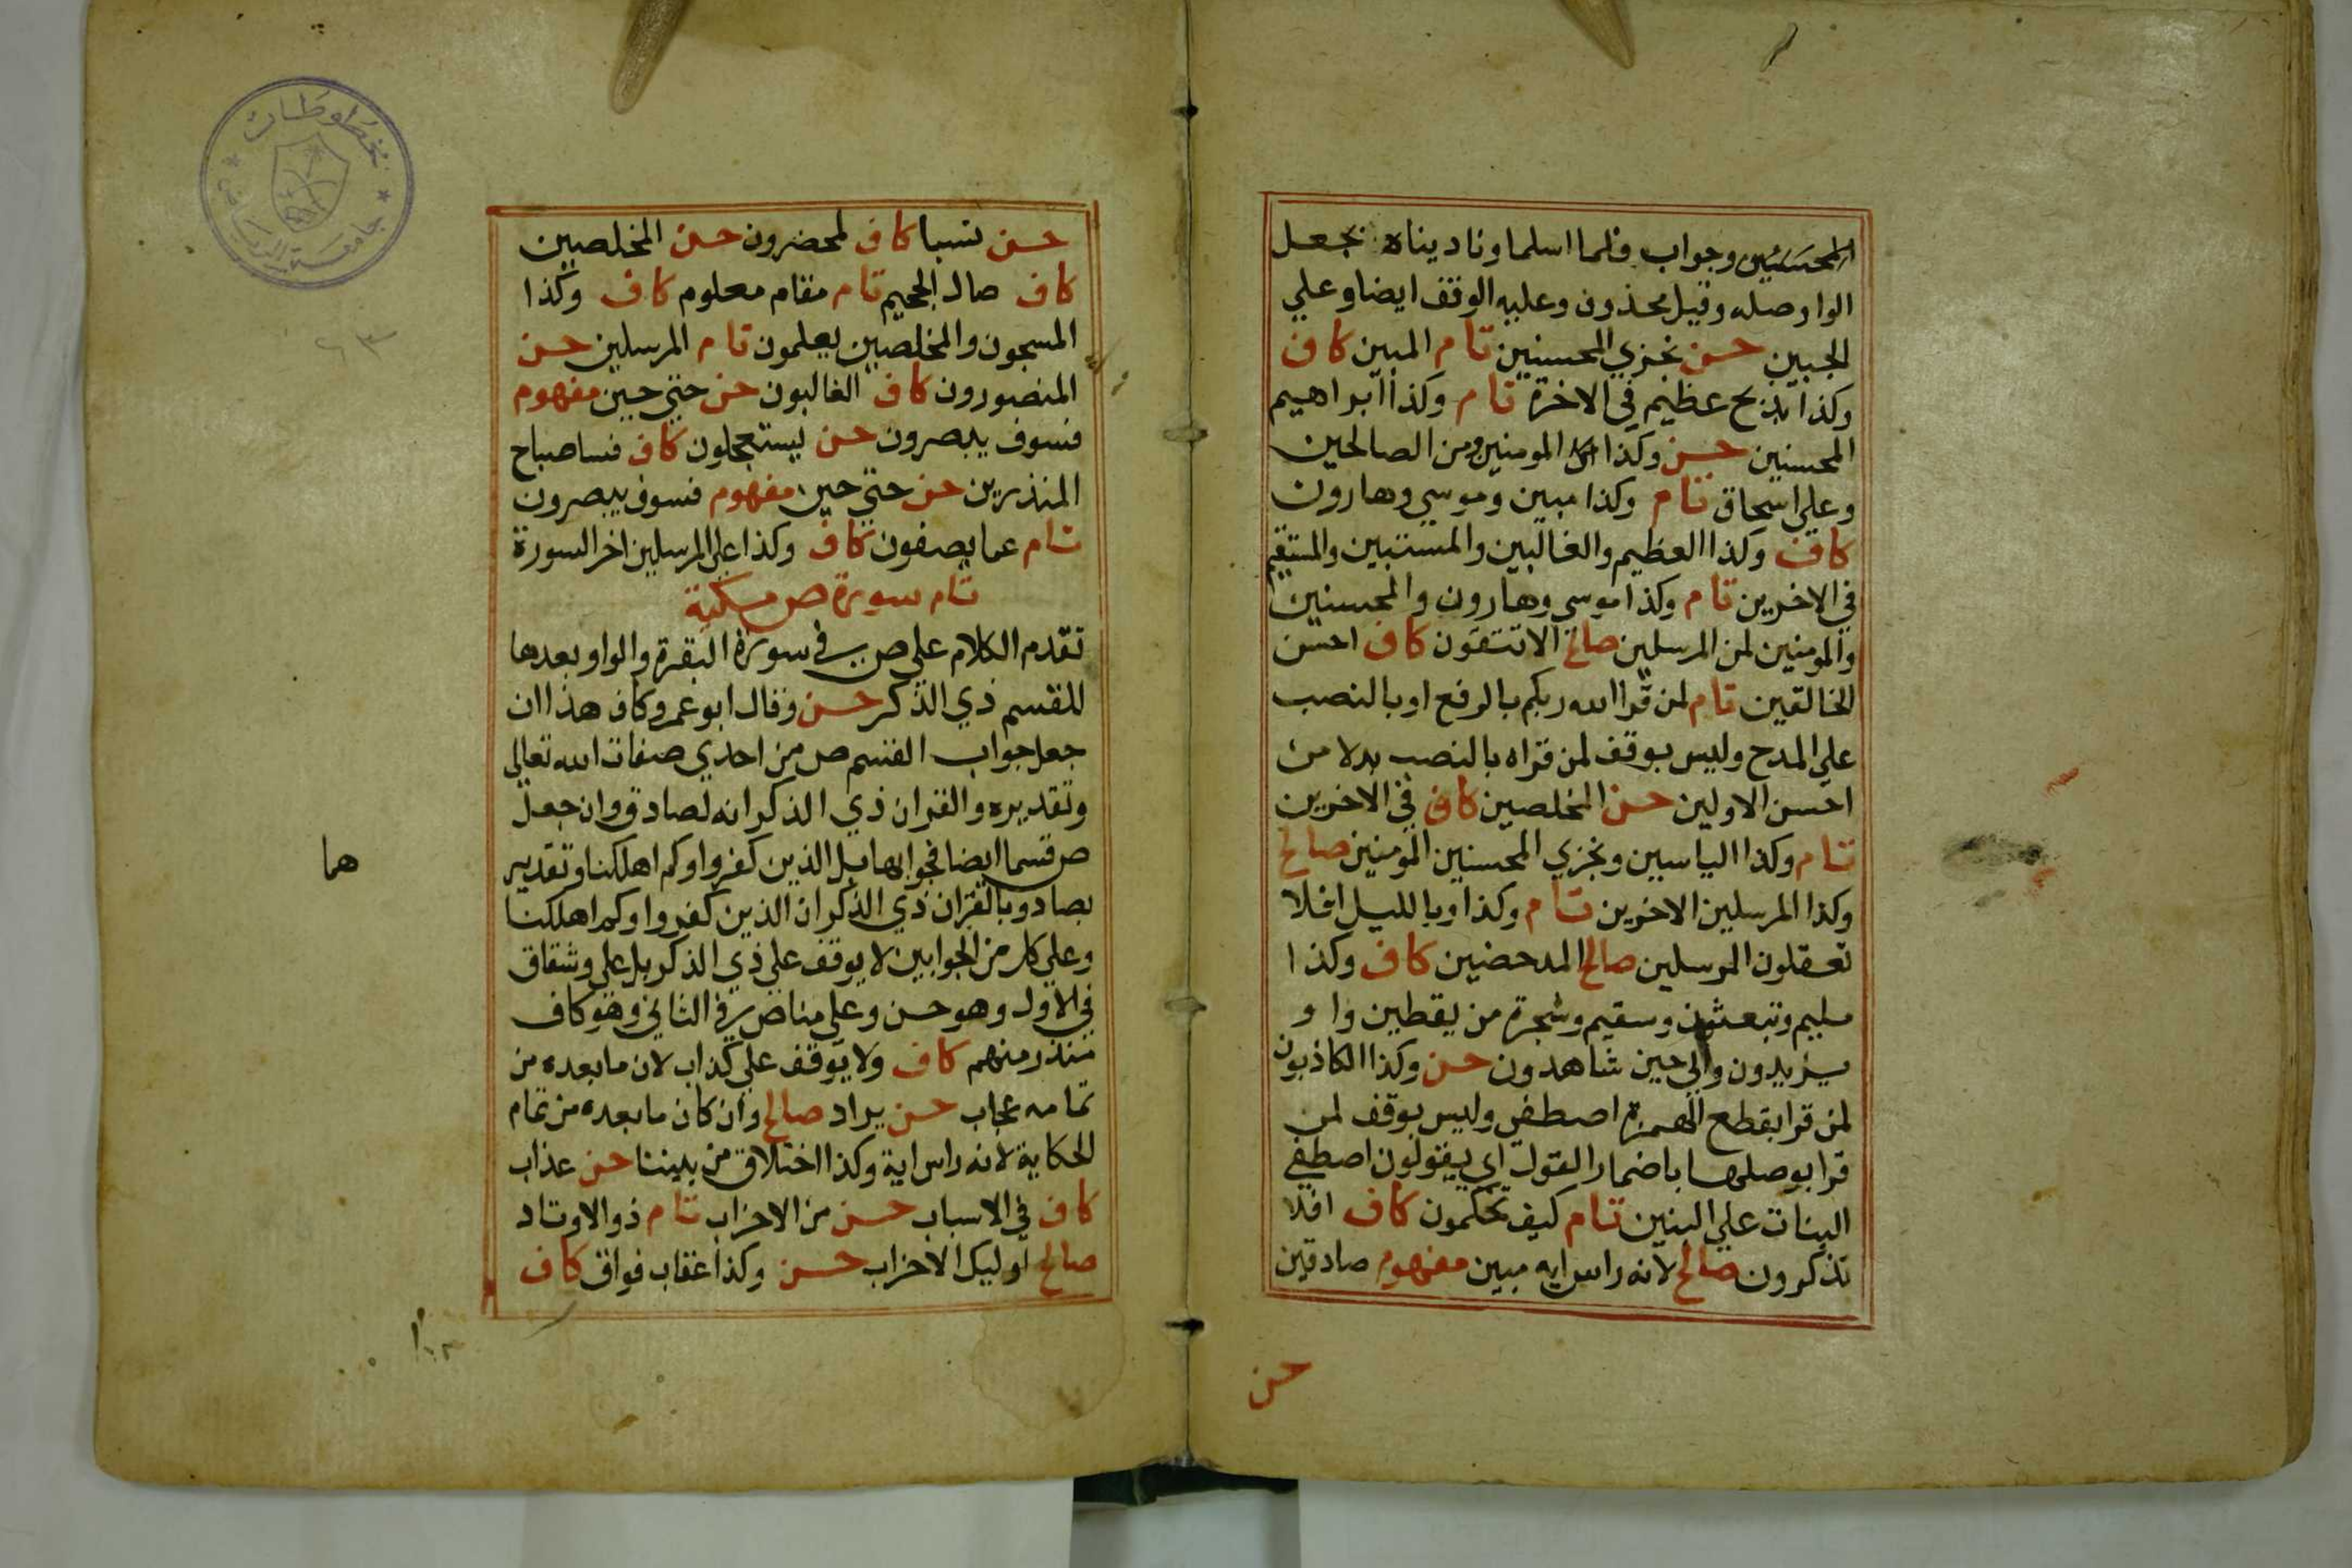 المحسنين وجواب فلما اسلما وناديناه بجعل
الواو صله وقيل محذوف وعليه الوقف ايضا وعلي
الجبين حسن نجزي المحسنين تام المبين كاف
وكذا بذبح عظيم في الاخرة تام وكذا ابراهيم
المحسنين حسن وكذا المومنين ومن الصالحين
وعلي اسحاق تام وكذا مبين وموسي وهارون
كاف وكذا العظيم والغالبين والمستبين والمستقيم
في الاخرين تام وكذا موسي وهارون والمحسنين
والمومنين لمن المرسلين صالح الا تتقون كاف احسن
الخالقين تام لمن قرا الله ربكم بالرفع او بالنصب
علي المدح وليس بوقف لمن قراه بالنصب بدلا من
احسن الاولين حسن المخلصين كاف في الاخرين
تام وكذا الياسين ونجزي المحسنين المومنين صالح
وكذا المرسلين الاخرين تام وكذا وبالليل افلا
تعقلون المرسلين صالح المدحضين كاف وكذا
مليم ويبعثون وسقيم وشجرة من يقطين واو
يزيدون والي حين شاهدون حسن وكذا الكاذبون
لمن قرا بقطع الهمزة اصطفي وليس بوقف لمن
قرا بوصلها باضمار القول اي يقولون اصطفي
البنات علي البنين تام كيف تحكمون كاف افلا
تذكرون صالح لانه راس ايه مبين مفهوم صادقين
حسن
حسن نسبا كاف لمحضرون حسن المخلصين
كاف صال الجحيم تام مقام معلوم كاف وكذا
المسبحون والمخلصين يعلمون تام المرسلين حسن
المنصورون كاف الغالبون حسن حتي حين مفهوم
فسوف يبصرون حسن يستعجلون كاف فسا صباح
المنذرين حسن حتي حين مفهوم فسوف يبصرون
تام عما يصفون كاف وكذا علي المرسلين اخر السورة
تام سورة ص مكية
تقدم الكلام علي ص في سورة البقرة والواو بعدها
للقسم ذي الذكر حسن وقال ابو عمرو كاف هذا ان
جعل جواب القسم ص من احدي صفات الله تعالي
وتقديره والقران ذي الذكر انه لصادق وان جعل
ص قسما ايضا فجوابها بل الذين كفروا او كم اهلكنا وتقديره
بصاد وبالقران ذي الذكر ان الذين كفروا او كم اهلكنا
وعلي كل من الجوابين لا يوقف علي ذي الذكر بل علي وشقاق
في الاول وهو حسن وعلي مناص في الثاني وهو كاف
منذر منهم كاف ولا يوقف علي كذاب لان ما بعده من
تمامه عجاب حسن يراد صالح وان كان ما بعده من تمام
الحكاية لانه راس اية وكذا اختلاق من بيننا حسن عذاب
كاف في الاسباب حسن من الاحزاب تام ذو الاوتاد
صالح اوليك الاحزاب حسن وكذا عقاب فواق كاف
هما
مخطوطات
جامعة الرياض